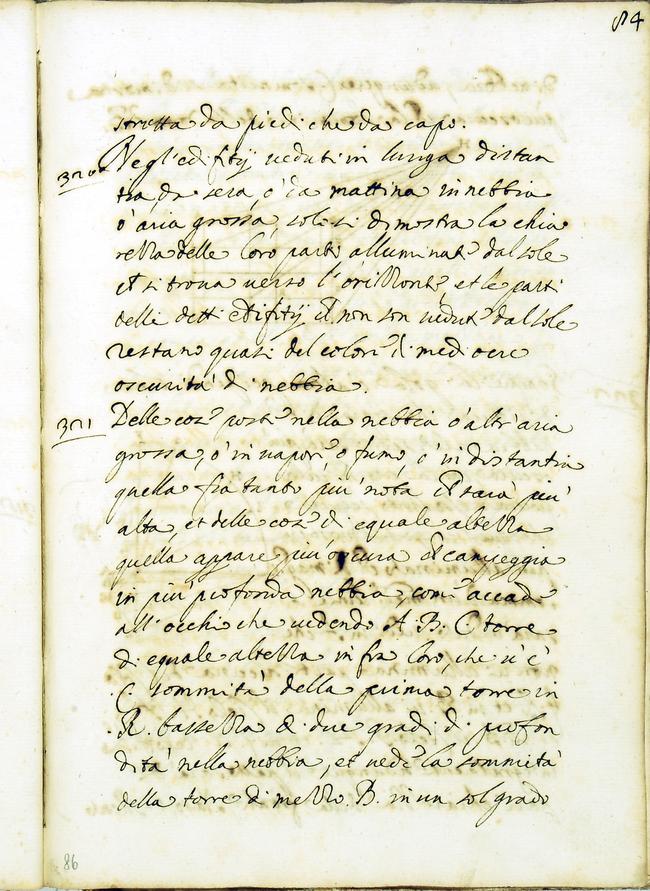 84
stretta da piedi che da capo.
320 Negl'edifitij ueduti in lunga distan
tia, da sera, ò da mattina in nebbia
ò aria grossa, solo si dimostra la chia
rezza delle loro parti alluminate dal sole
che si troua uerso l'orizzonte, et le parti
delli detti edifitij che non son uedute dal sole
restano quasi del colore di mediocre
oscurità di nebbia.
321 Delle cose poste nella nebbia ò altr'aria
grossa, ò in uapore, o fumo, ò in distantia
quella fia tanto più nota che sarà più
alta, et delle cose di equale altezza
quella appare più oscura che campeggia
in più profonda nebbia, come accade
all'occhi che uedendo A. B. C. torre
di equale altezza infra loro, che u'è
.C. sommità della prima torre in
.R. bassezza di due gradi di profon
dità nella nebbia, et uede la sommità
della torre di mezzo .B. in un sol grado
86